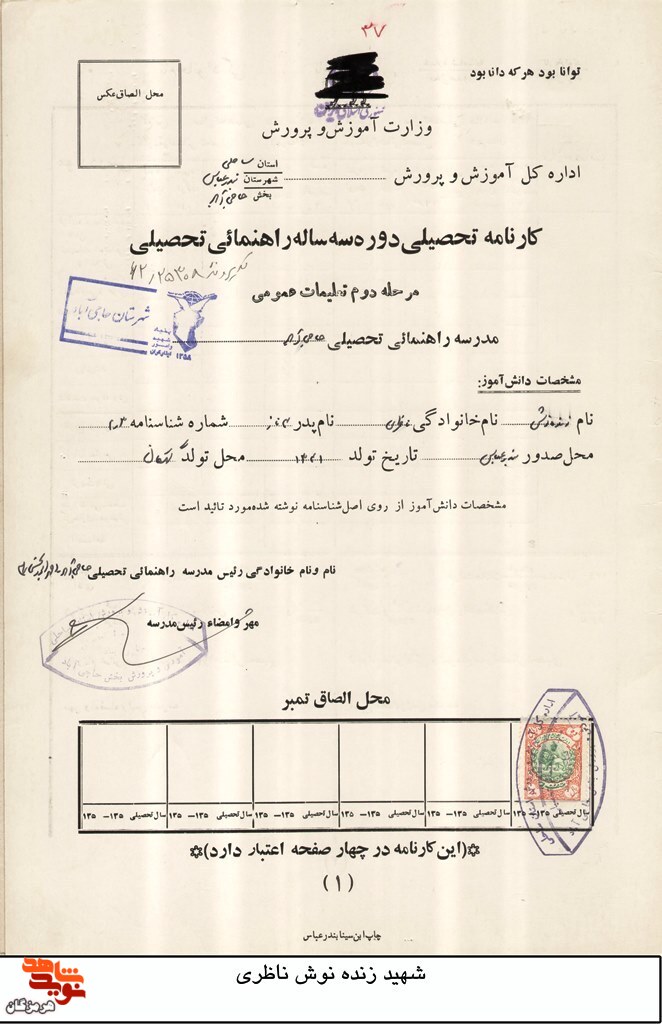 ۳۷
توانا بود هر که دانا بود
محل الصاق عکس
وزارت آموزش و پرورش
اداره کل آموزش و پرورش
استان ساحلی
شهرستان بندرعباس
بخش حاجی آباد
کارنامه تحصیلی دوره سه ساله راهنمائی تحصیلی
مرحله دوم تعلیمات عمومی
شهرستان حاجی آباد
مدرسه راهنمائی تحصیلی حاجی آباد
۱۳۵۸
مشخصات دانش آموز:
نام زنده نوش نام خانوادگی ناظری نام پدر شماره شناسنامه
محل صدور بندرعباس تاریخ تولد ۱۳۴۱ محل تولد
مشخصات دانش آموز از روی اصل شناسنامه نوشته شده مورد تائید است
نام و نام خانوادگی رئیس مدرسه راهنمائی تحصیلی حاجی آباد
مهر و امضاء رئیس مدرسه
محل الصاق تمبر
سال تحصیلی ۱۳۵ـــ ۱۳۵ سال تحصیلی ۱۳۵ـــ ۱۳۵ سال تحصیلی ۱۳۵ـــ ۱۳۵ سال تحصیلی ۱۳۵ـــ ۱۳۵ سال تحصیلی ۱۳۵ـــ ۱۳۵ سال تحصیلی ۱۳۵ـــ ۱۳۵
✡(این کارنامه در چهار صفحه اعتبار دارد)✡
(۱)
چاپ ابن سینا بندرعباس
شهید زنده نوش ناظری
نوید شاهد
هرمزگان